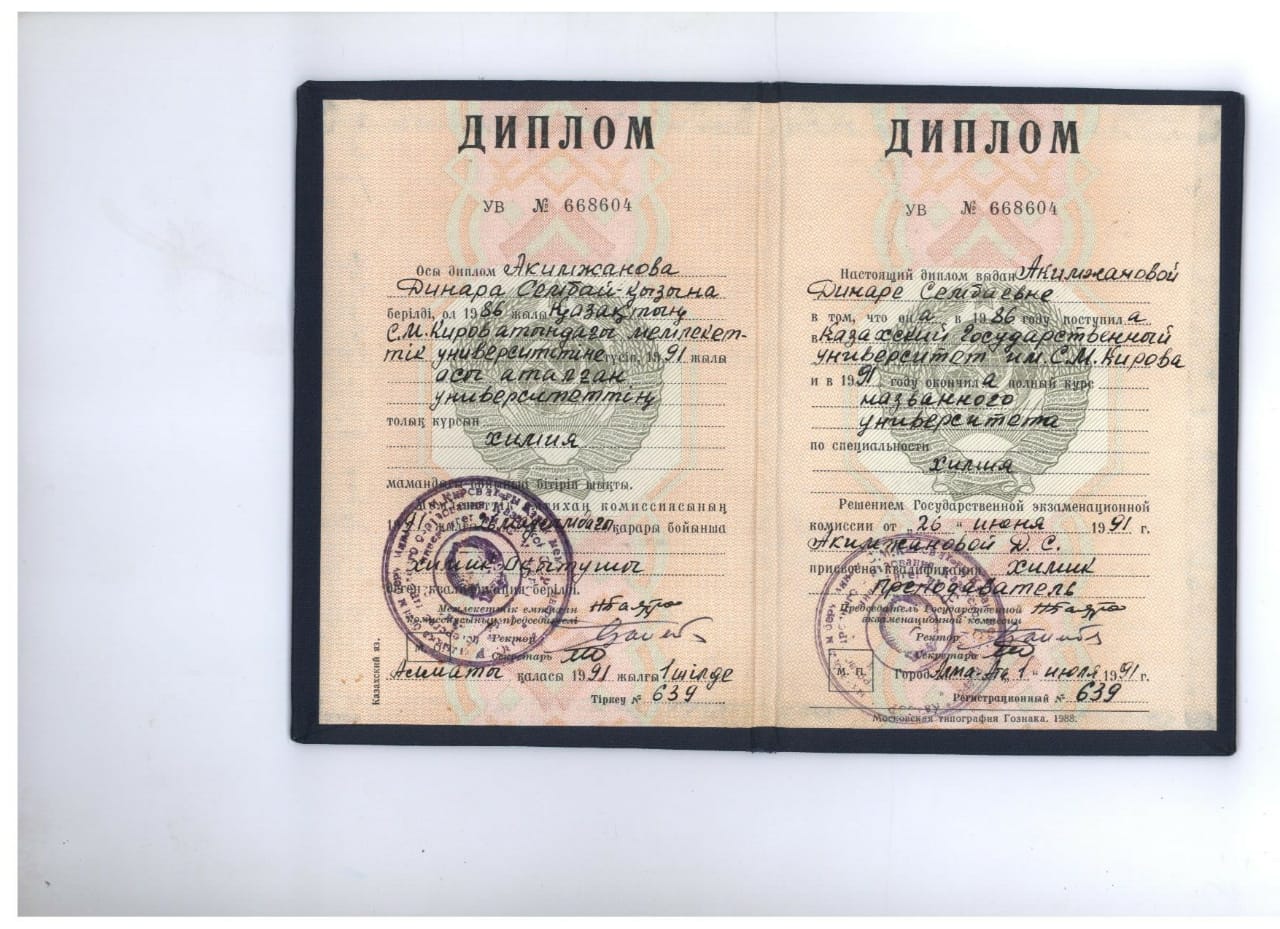 ДИПЛОМ
УВ № 668604
Осы диплом Акимжанова
Динара Сембай-қызына
берілді, ол 1986 жылы Қазақтың
С.М.Киров атындағы мемлекет-
тік университетіне түсіп, 1991 жылы
осы аталған
университеттің
толық курсын
химия
мамандығы бойынша бітіріп шықты.
комиссиясының
1991 қарары бойынша
химик оқытушы
деген квалификация берілді.
Мемлекеттік емтихан
комиссиясының председателі
Ректор
Секретарь
М.
Алматы қаласы 1991 жылғы 1 шілде
Тіркеу № 639
Казахский яз.
ДИПЛОМ
УВ № 668604
Настоящий диплом выдан Акимжановой
Динаре Сембаевне
в том, что она в 1986 году поступила
в Казахский Государственный
университет им. С.М.Кирова
и в 1991 году окончила полный курс
названного
университета
по специальности
химия
Решением Государственной экзаменационной
комиссии от „26“ июня 1991 г.
Акимжановой Д. С.
присвоена квалификация химик
преподаватель
Председатель Государственной
экзаменационной комиссии
Ректор
Секретарь
М. П.
Город Алма-Ата, 1 " июля 1991 г.
Регистрационный № 639
Московская типография Гознака. 1988.